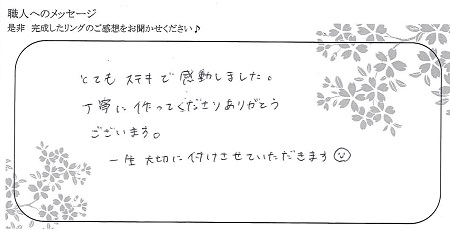 職人へのメッセージ
是非 完成したリングのご感想をお聞かせください♪
とても ステキで 感動しました。
丁寧に 作ってくださりありがとう
ございます。
一生 大切に 付けさせていただきます☺